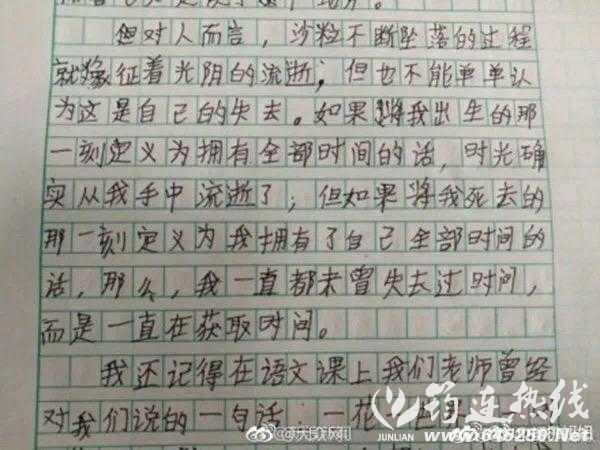 但对人而言，沙粒不断坠落的过程
就像征着光阴的流逝；但也不能单单认
为这是自己的失去。如果将我出生的那
一刻定义为拥有全部时间的话，时光确
实从我手中流逝了；但如果将我死去的
那一刻定义为我拥有了自己全部时间的
话，那么，我一直都未曾失去过时间，
而是一直在获取时间。
我还记得在语文课上我们老师曾经
对我们说的一句话，一花一
筠连热线
JUNLIAN
www.645250.Net